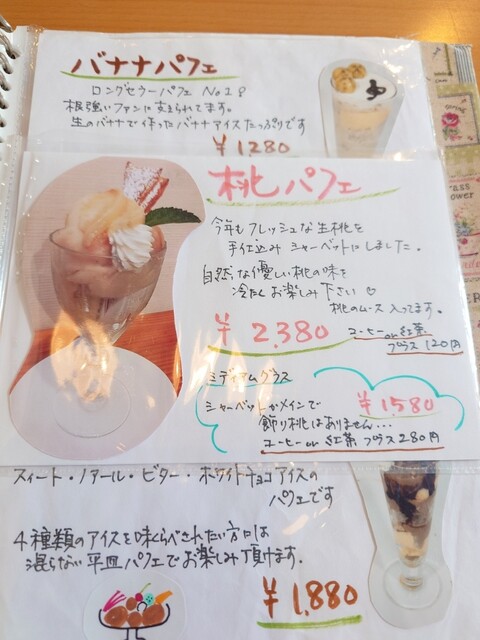 バナナパフェ
ロングセラーパフェ No1♀
根強いファンに支えられてます。
生のバナナで作ったバナナアイスたっぷりです
¥1280
桃パフェ
今年もフレッシュな生桃を
手仕込みシャーベットにしました。
自然な優しい桃の味を
冷たくお楽しみ下さい♡
桃のムース入ってます。
¥2,380
コーヒーor紅茶
プラス120円
ミディアムグラス
シャーベットがメインで
¥1580
飾り桃はありません…
コーヒーor紅茶プラス280円
スィート・ノアール・ビター・ホワイトチョコアイスの
パフェです
4種類のアイスを味くらべされたい方には
混らない平皿パフェでお楽しみ頂けます.
¥1,880